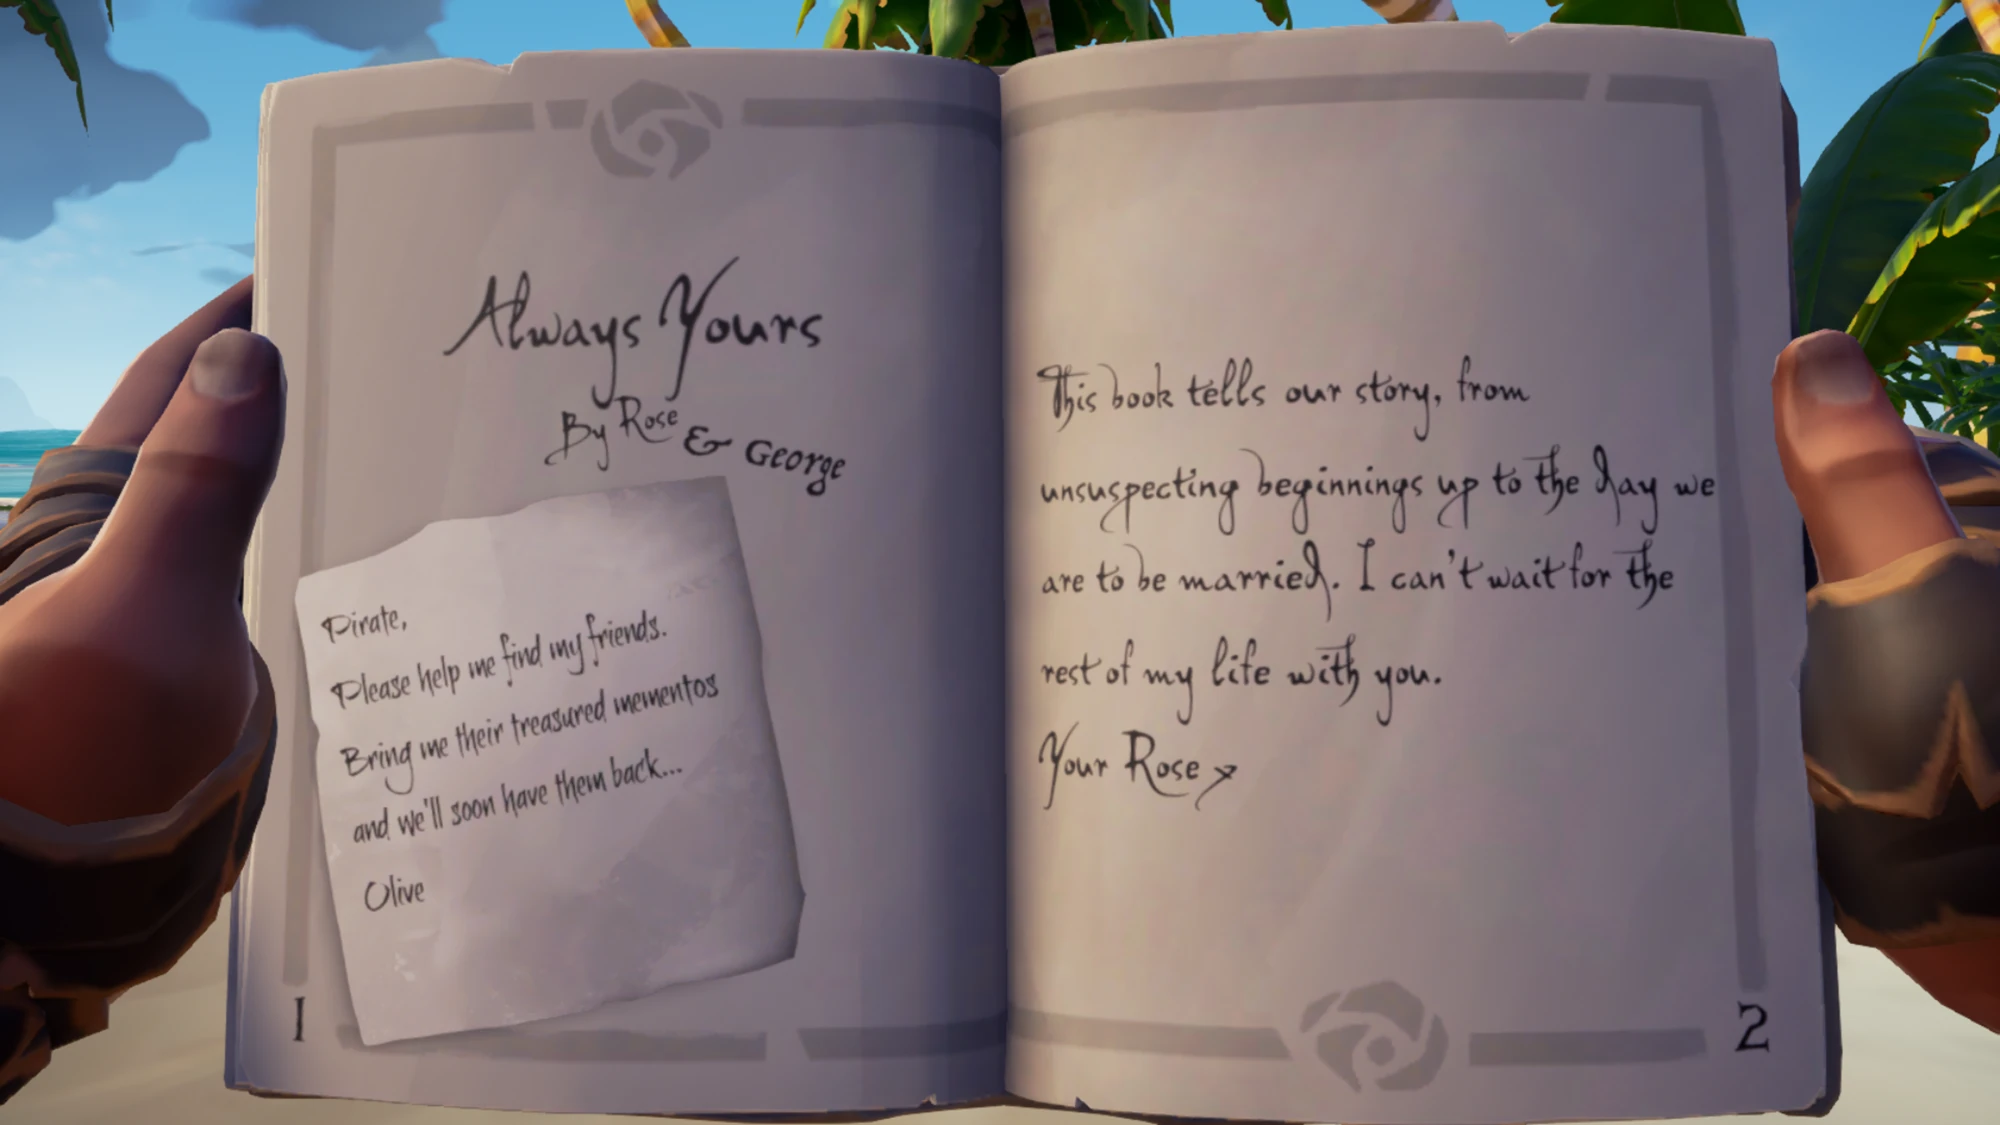 Always Yours
By Rose & George
Pirate,
Please help me find my friends.
Bring me their treasured mementos
and we'll soon have them back...
Olive
1
This book tells our story, from
unsuspecting beginnings up to the day we
are to be married. I can't wait for the
rest of my life with you.
Your Rose x
2